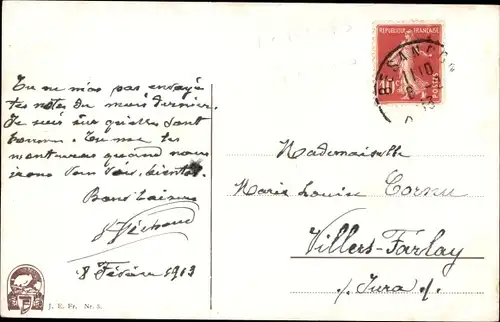 REPUBLIQUE FRANÇAISE
10c POSTES
BESANÇON
Tu ne m'as pas envoyé
tes notes du mois dernier.
Je suis sûr qu'elles sont
bonnes. Tu me les
montreras quand nous
irons vous voir, bientôt.
Bons baisers
8 Février 1913
Mademoiselle
Marie Louise
Villers-Farlay
Jura
J. E. Fr. Nr. 5.